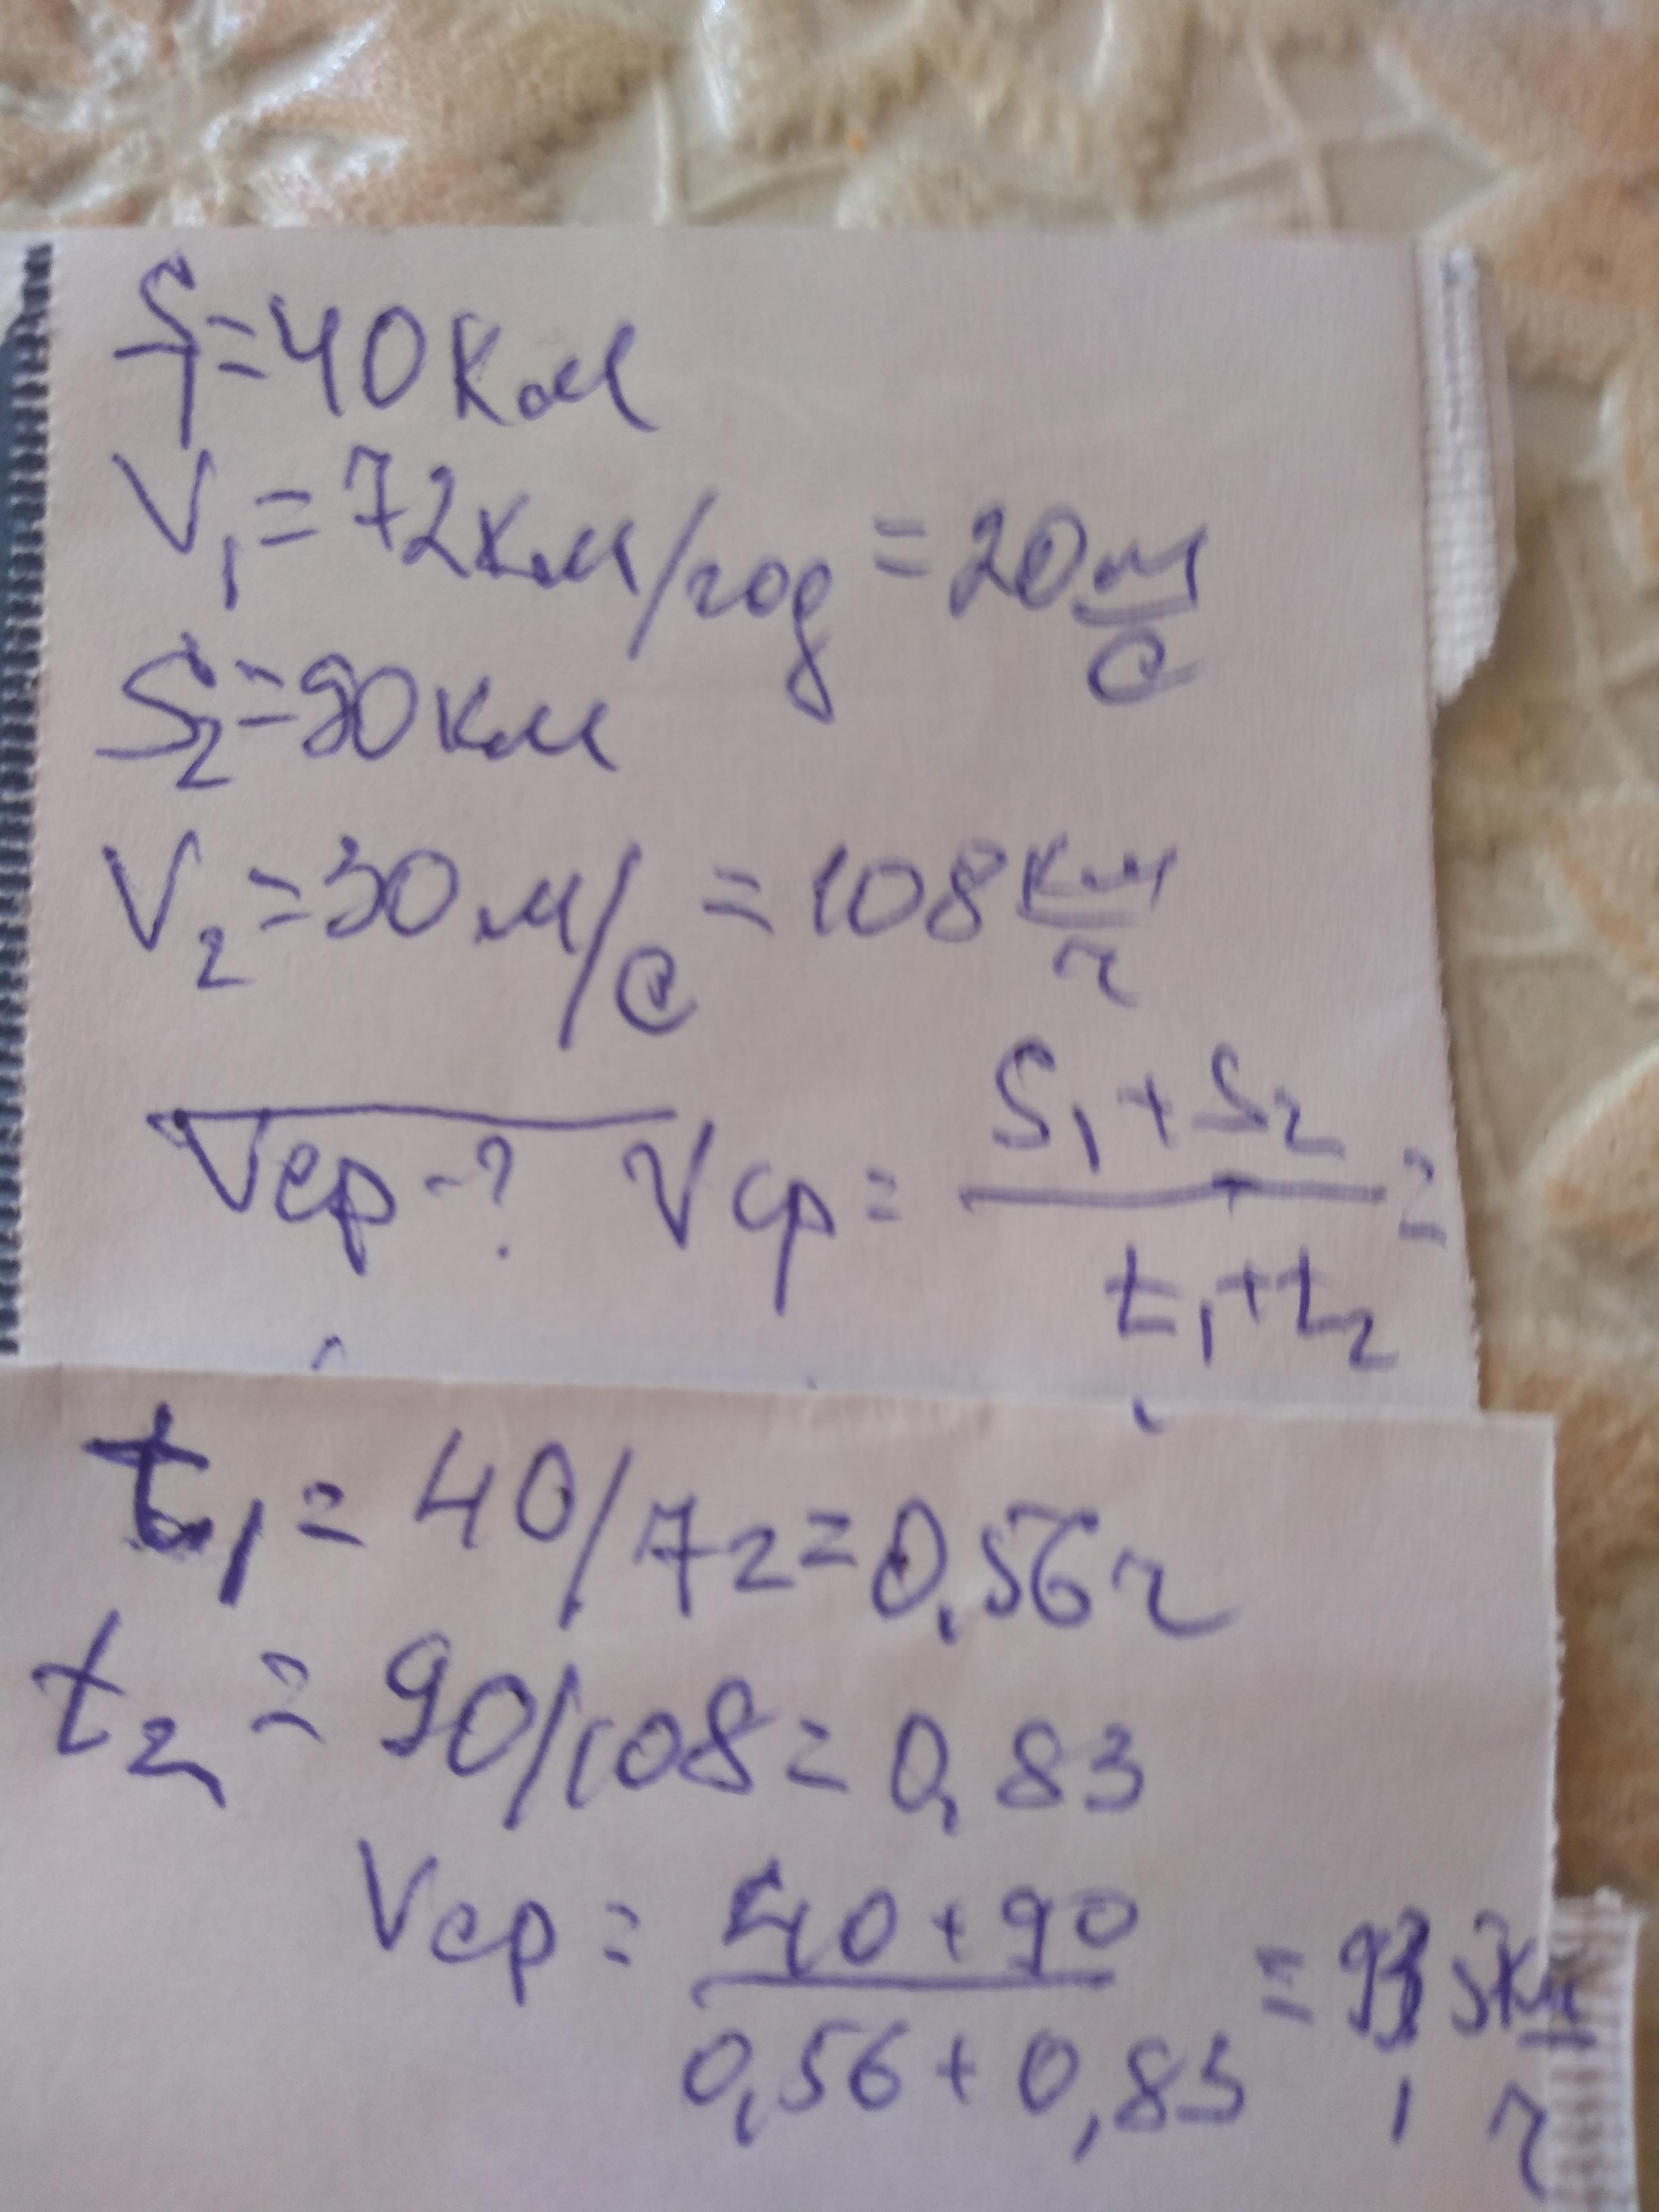 S₁=40км
V₁=72км/год=20м/с
S₂=90км
V₂=30м/с=108км/г
Vср-? Vср=(S₁+S₂)/(t₁+t₂)=
t₁=40/72=0,56г
t₂=90/108=0,83
Vср=(40+90)/(0,56+0,83)=93,5км/г